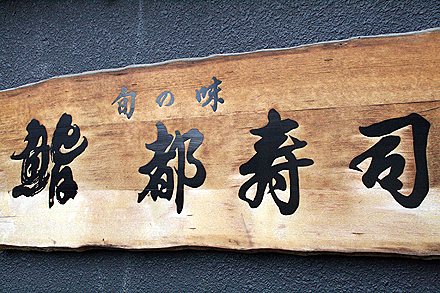 旬の味
鮨都寿司